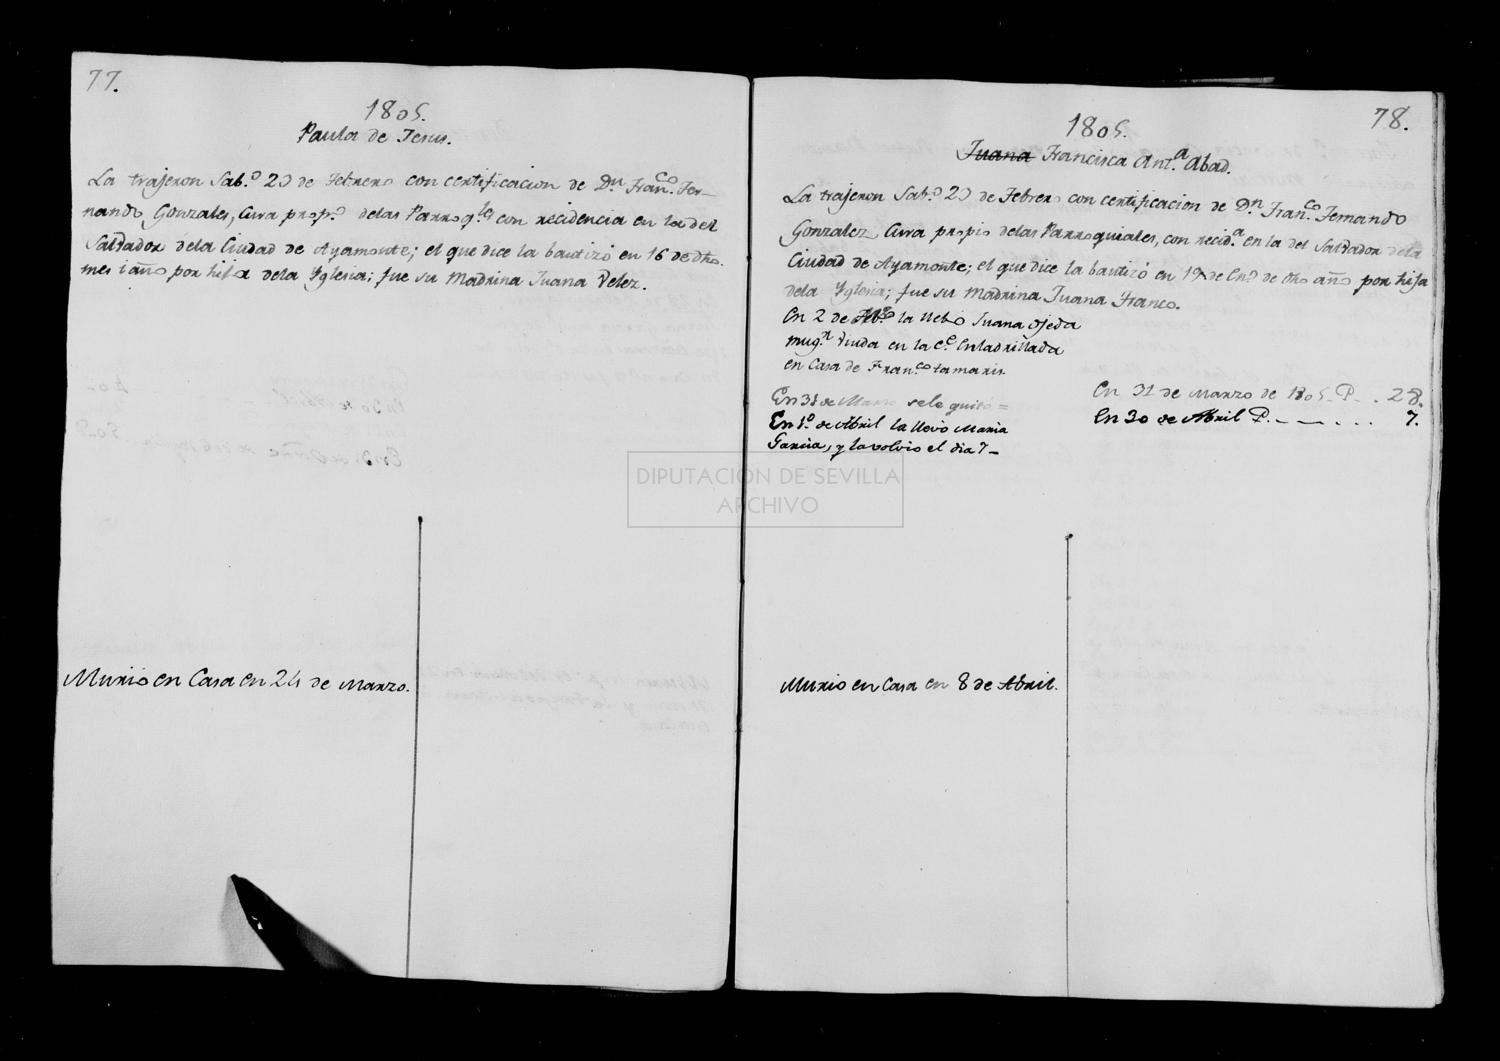 77.
1805.
Paula de Jesus.
La trajeron Sab.º 23 de Febrero con certificacion de D.n Fran.co Fer-
nando Gonzales, Cura prop.º delas Parroq.les con recidencia en la del
Salvador dela Ciudad de Ayamonte; el que dice la bautizó en 16 de dho.
mes i año por hija dela Yglesia; fue su Madrina Juana Velez.
Murio en Casa en 24 de Marzo.
78.
1805.
Juana Francisca Ant.a Abad.
La trajeron Sab.º 23 de Febrero con certificacion de D.n Fran.co Fernando
Gonzalez Cura propio delas Parroquiales, con recid.a en la del Salvador dela
Ciudad de Ayamonte; el que dice la bautizó en de En.º de dho año por hija
dela Yglesia; fue su Madrina Juana Franco.
en 2 de la llebó Juana ojeda
mug.r Viuda en la C.e Enladrillada
en Casa de Fran.co tamaris.
En 31 de Marzo sele quitó =
En 1.º de Abril la llevo Maria
Garcia, y la volvio el dia 7 -
En 31 de Marzo de 1805. P. . 28.
En 30 de Abril P. - - . . . 7.
DIPUTACIÓN DE SEVILLA
ARCHIVO
Murio en Casa en 8 de Abril.